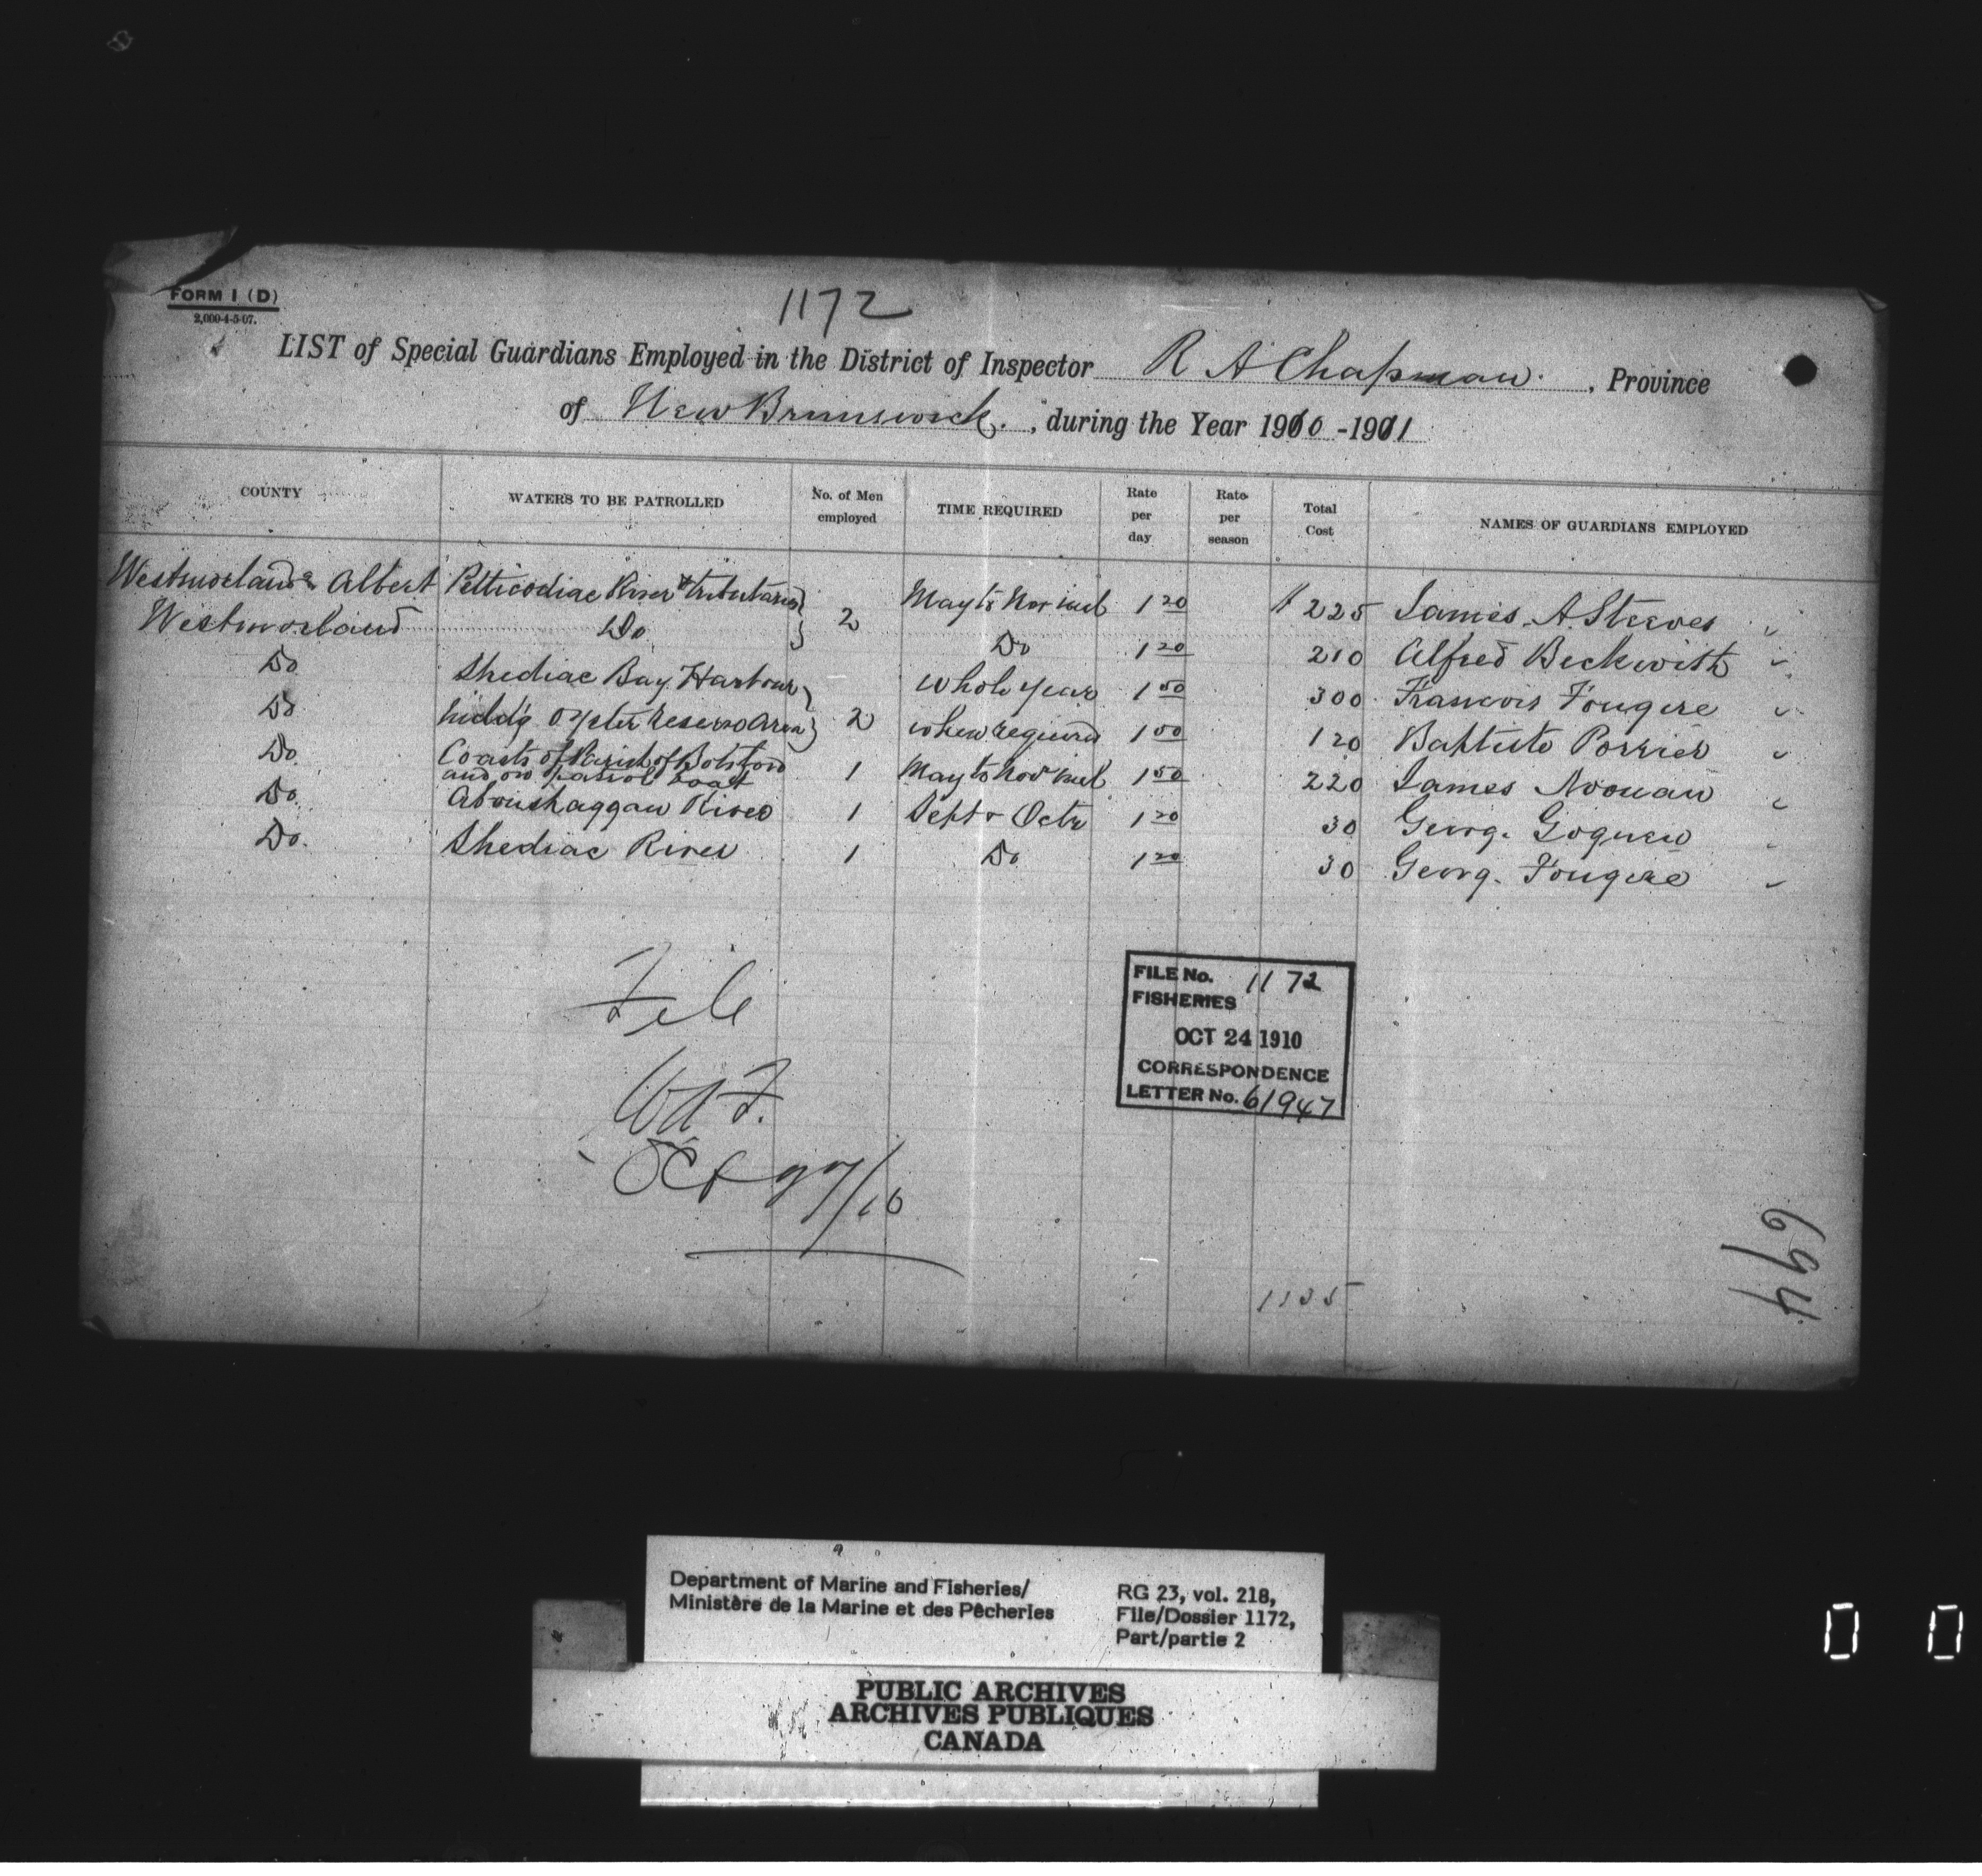 FORM 1 (D)
2,000-4-5-07.
1172
LIST of Special Guardians Employed in the District of Inspector R A Chapman. , Province
of New Brunswick. , during the Year 1910 -1911
COUNTY WATERS TO BE PATROLLED No. of Men employed TIME REQUIRED Rate per day Rate per season Total Cost NAMES OF GUARDIANS EMPLOYED
Westmorland & Albert Petticodiac River & tributaries } 2 May to Nov incl 1 20 $ 225 James. A. Steeves
Westmorland Do Do 1 20 210 Alfred Beckwith
Do Shediac Bay Harbour whole year 1 50 300 Francois Fougere
Do Oyster Reserve Area } 2 when required 1 50 120 Baptiste Porrier
Do. Coasts of Parish of Botsford 1 May to Nov incl 1 50 220 James Noonan
and on patrol boat
Do. Aboushaggan River 1 Sept & Octr 1 20 30 Georg. Goguen
Do. Shediac River 1 Do 1 20 30 Georg. Fougere
File
Oct 27/10
FILE No. 1172
FISHERIES
OCT 24 1910
CORRESPONDENCE
LETTER No. 61947
1135
694
Department of Marine and Fisheries/
Ministère de la Marine et des Pêcheries
RG 23, vol. 218,
File/Dossier 1172,
Part/partie 2
PUBLIC ARCHIVES
ARCHIVES PUBLIQUES
CANADA
0 0